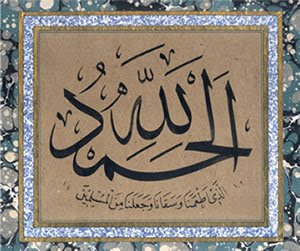 الحمد لله
الذى اطعمنا وسقانا وجعلنا من المسلمين